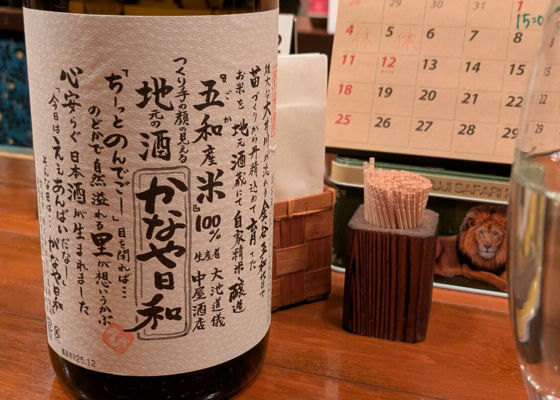 苗づくりから丹精込めて育てた
お米を、地元酒蔵にて自家精米、醸造
『ごか』
五和産米
100%
生産者 大池道儀
中屋酒店
つくり手の顔の見える
地元の酒
かなや日和
「ちーっとのんでごー」
目を閉ればここ
のどかで自然溢れる里が想いうかぶ
心安らぐ日本酒が生まれました
「今日はええあんばいだなー」
かなや日和
25.12
29
30
31
1
15:0
4
5
6
7
8
休
休
11
12
13
14
15
18
19
20
21
22
25
26
27
28
29
UJI SAFARI